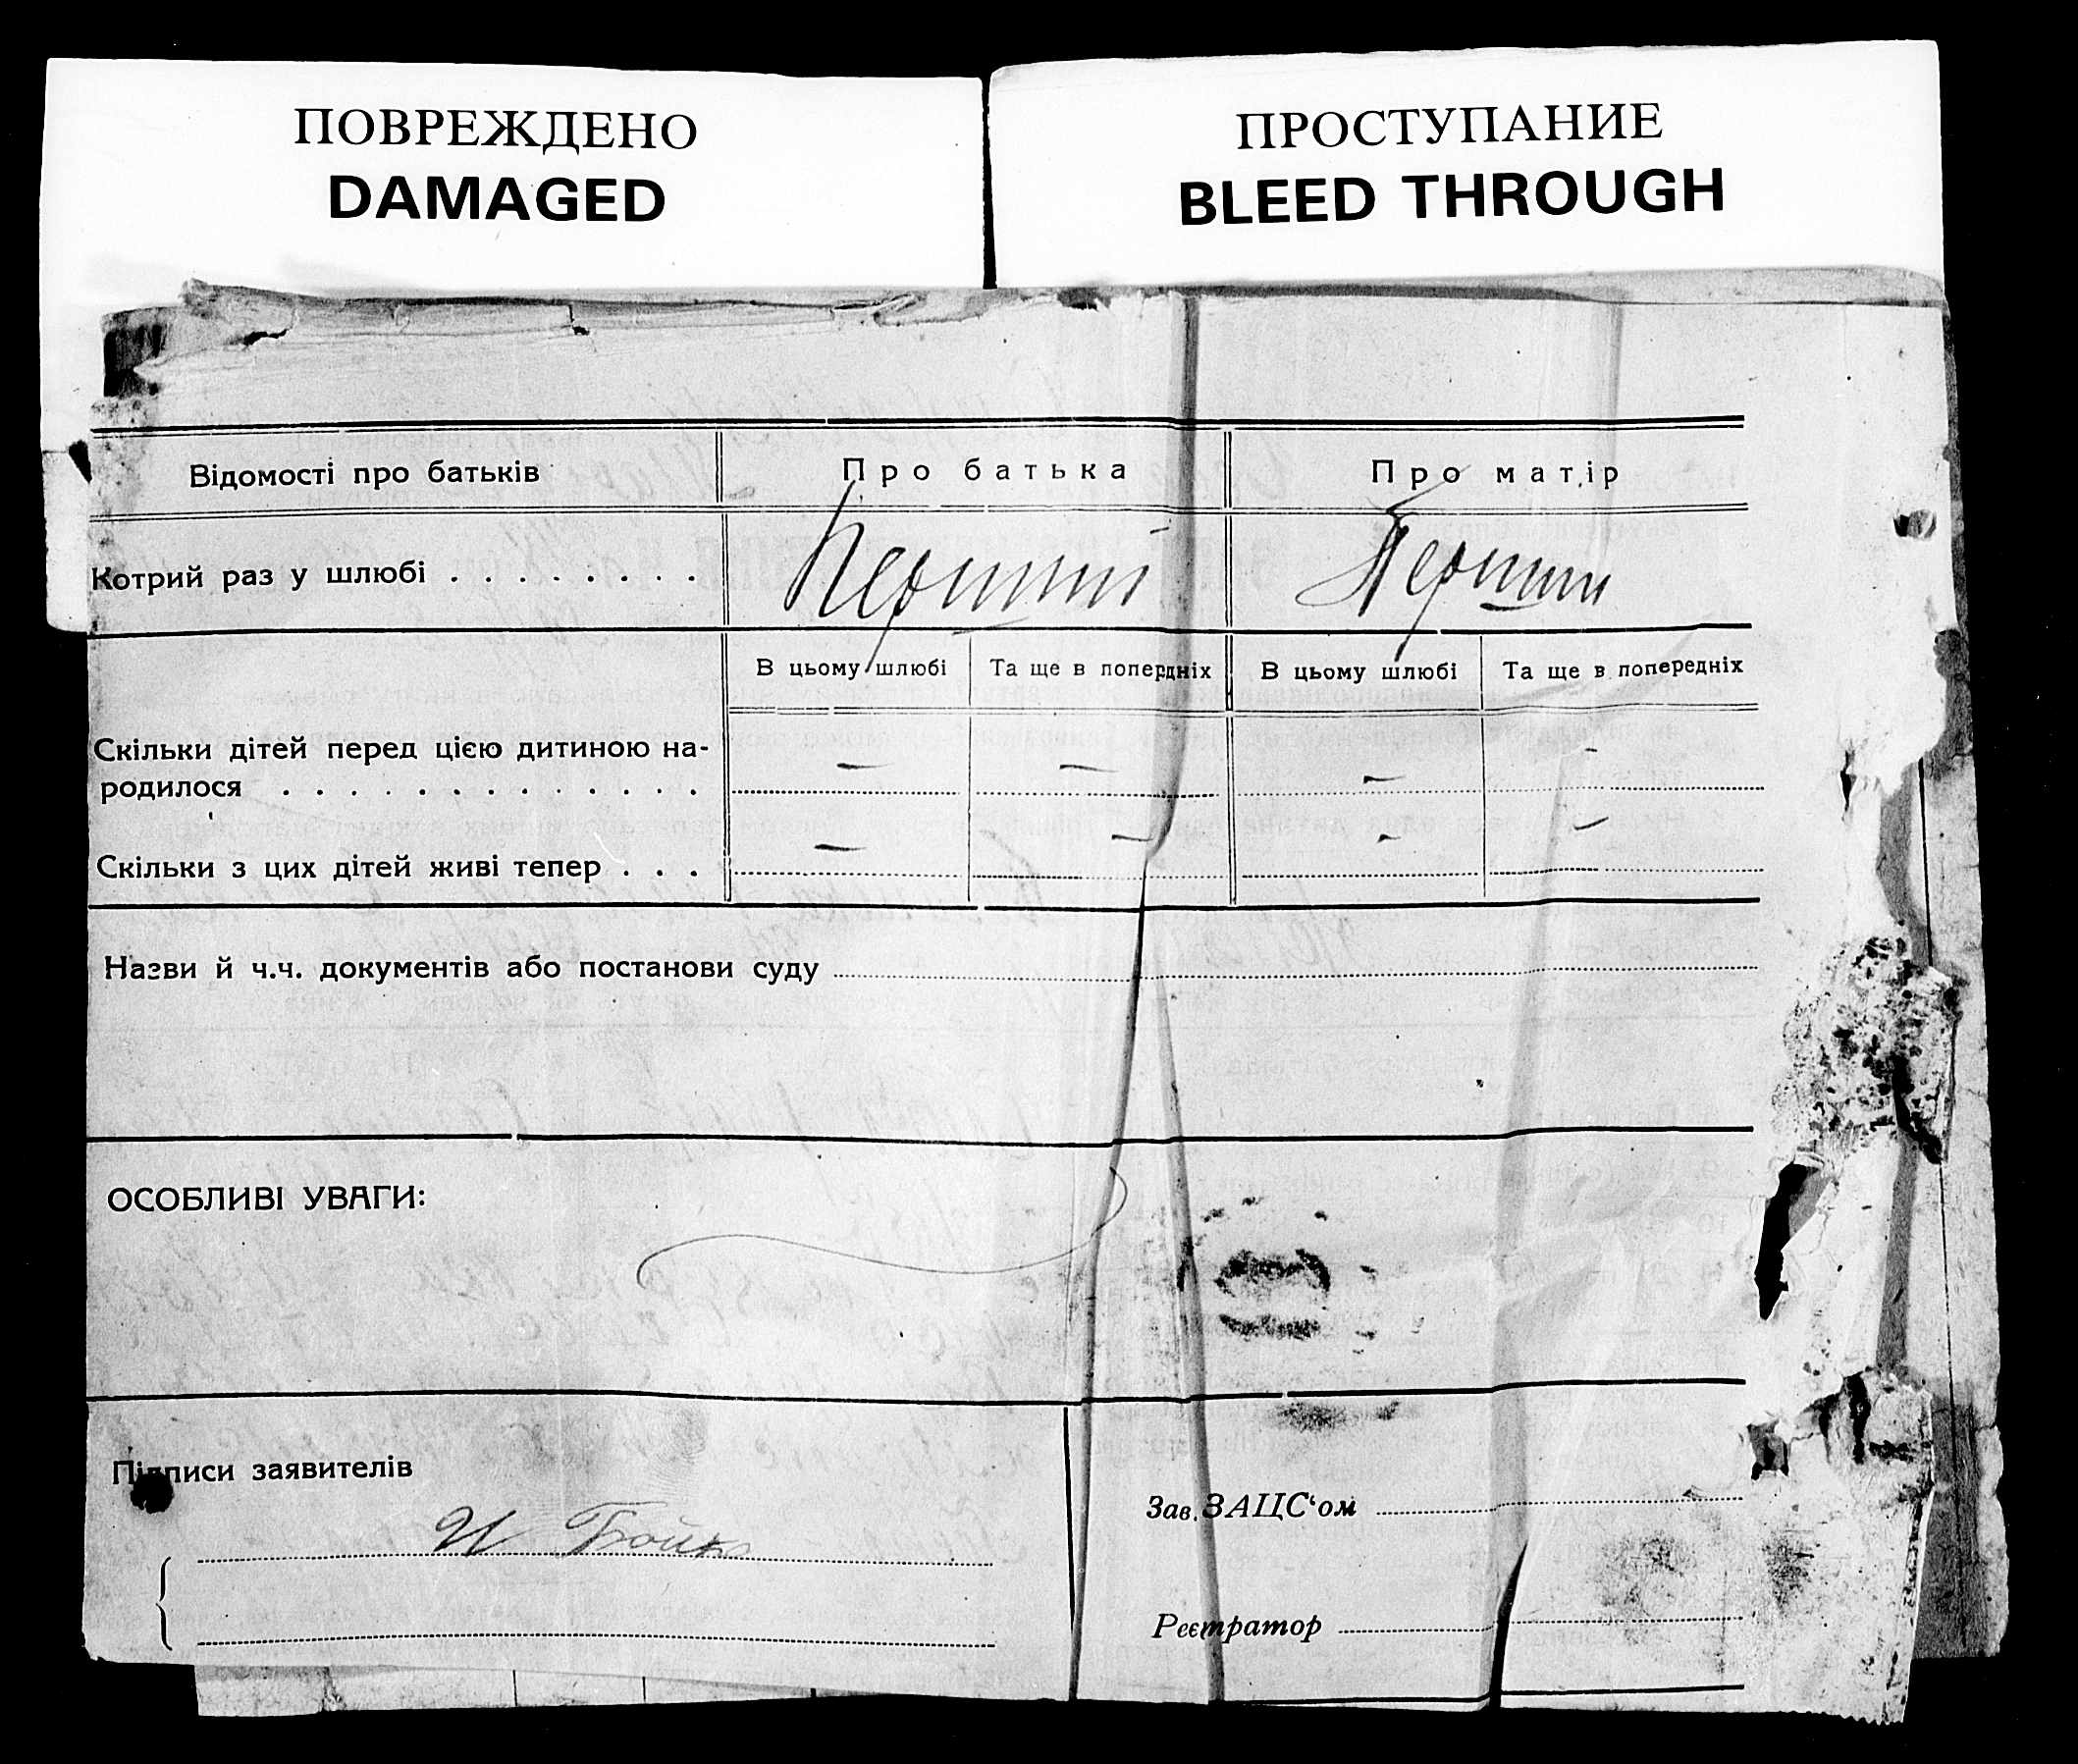 ПОВРЕЖДЕНО
DAMAGED
ПРОСТУПАНИЕ
BLEED THROUGH
Відомості про батьків
Про батька
Про матір
Котрий раз у шлюбі . . . . . . . .
Перший
Перший
В цьому шлюбі
Та ще в попередніх
В цьому шлюбі
Та ще в попередніх
Скільки дітей перед цією дитиною на-
родилося . . . . . . . . . . . . .
– – – –
Скільки з цих дітей живі тепер . . .
– – – –
Назви й ч.ч. документів або постанови суду
ОСОБЛИВІ УВАГИ:
Підписи заявителів
И Бойко
Зав. ЗАЦС‘ом
Реєтратор